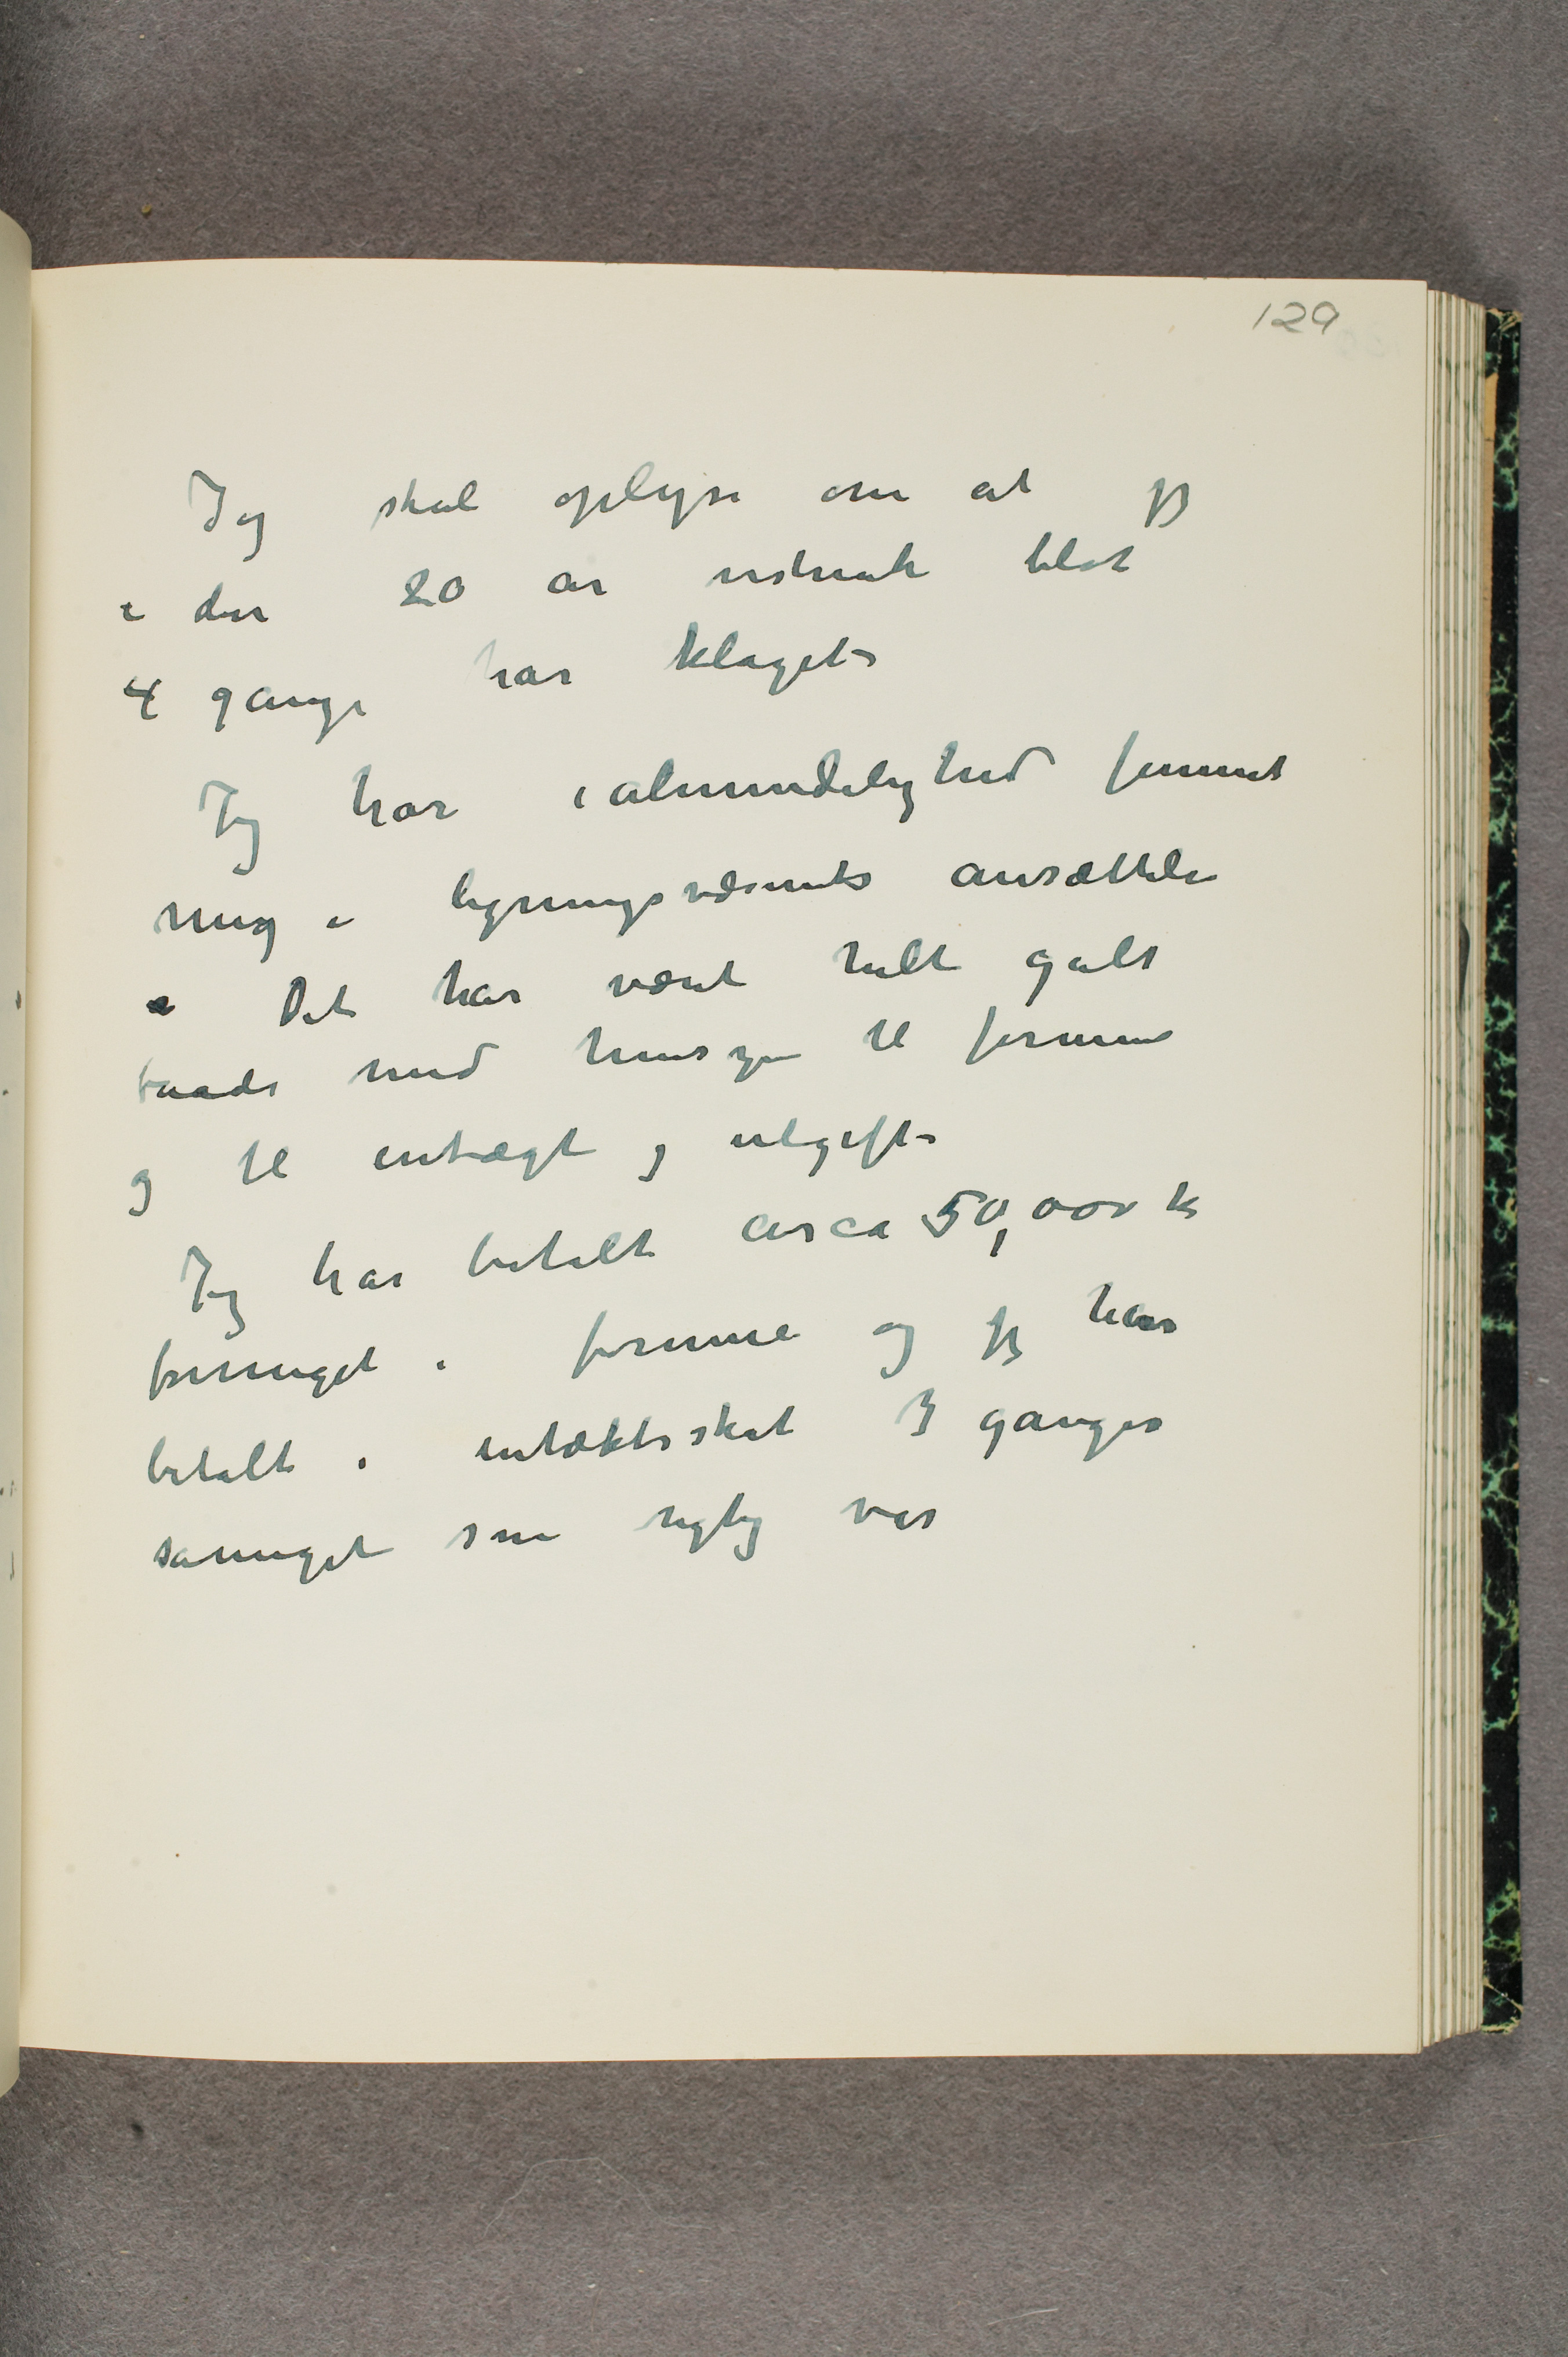 129
Jeg skal oplyse om at jeg
i den 20 år blot
4 gange har klaget –
Jeg har i almindelighed funnet
mig i ligningsvæsenets ansættelse
Det har været helt galt
baade med hensyn til formue
og til entægt og utgift –
Jeg har betalt circa 50,000 k
formeget i formue og jeg har
betalt i entæktsskat 3 ganger
sameget som rigtig var